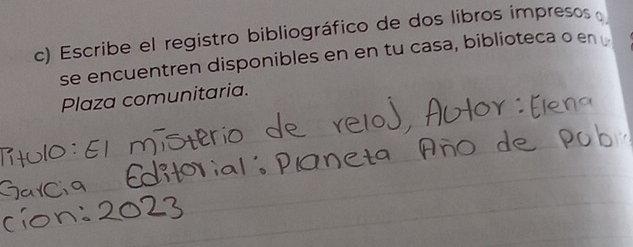 c) Escribe el registro bibliográfico de dos libros impresos
se encuentren disponibles en en tu casa, biblioteca o en
Plaza comunitaria.
Título: El misterio de reloj, Autor: Elena
García Editorial: Planeta Año de publi
cion: 2023